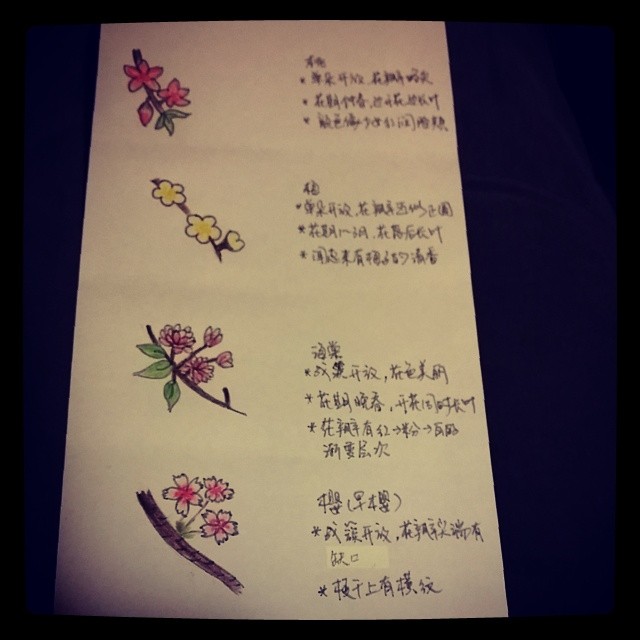 * 单朵开放，花瓣略尖
* 花期仲春，边开花边长叶
* 颜色像少女红润面颊
梅
* 单朵开放，花瓣近似正圆
* 花期1~3月，花落后长叶
* 闻起来有梅子的清香
海棠
* 成簇开放，花色美丽
* 花期晚春，开花同时长叶
* 花瓣有红→粉→白的
渐变层次
樱(早樱)
* 成簇开放，花瓣尖端有
缺口
* 枝干上有横纹